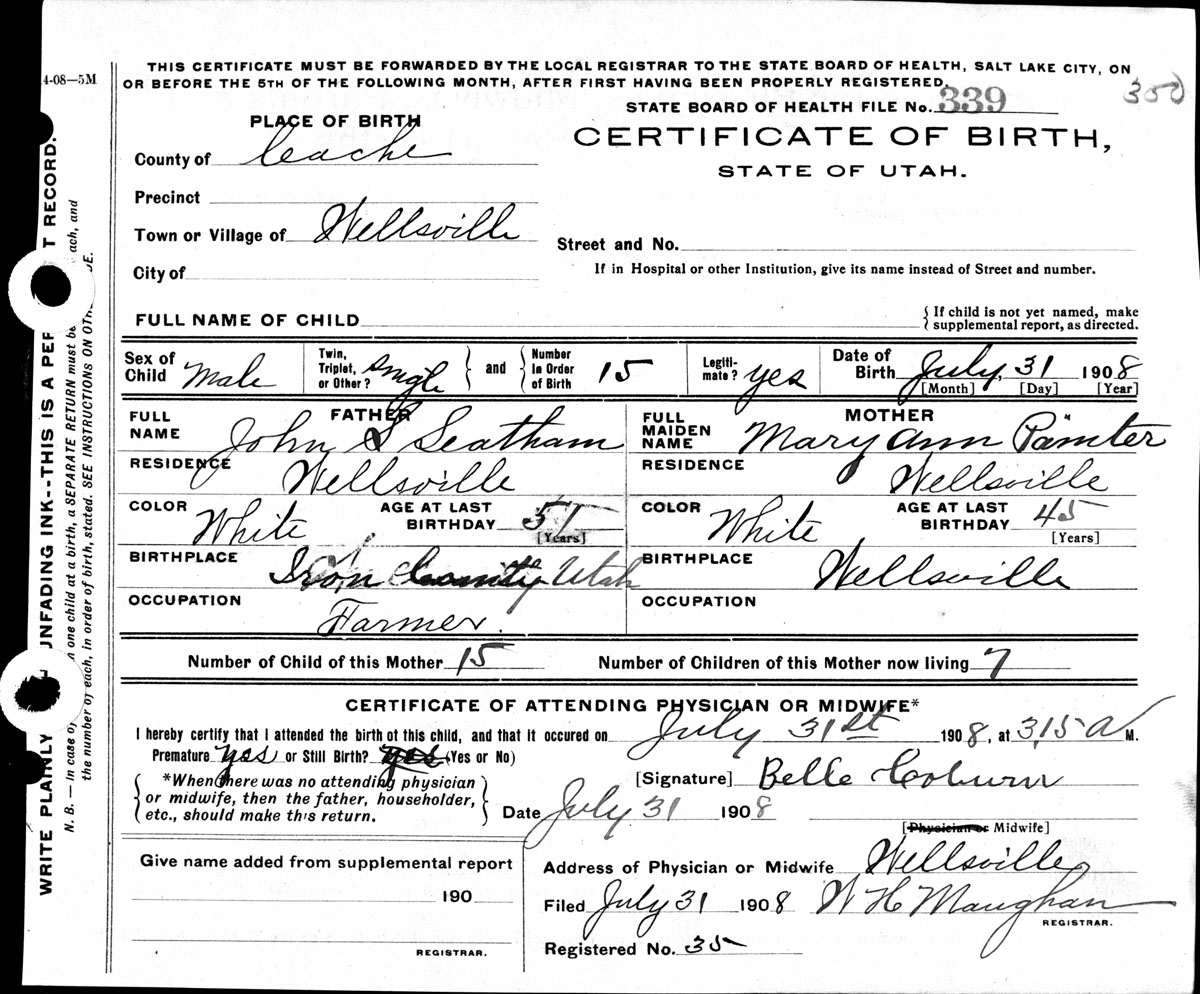 4-08—5M
THIS CERTIFICATE MUST BE FORWARDED BY THE LOCAL REGISTRAR TO THE STATE BOARD OF HEALTH, SALT LAKE CITY, ON
OR BEFORE THE 5TH OF THE FOLLOWING MONTH, AFTER FIRST HAVING BEEN PROPERLY REGISTERED.
350
STATE BOARD OF HEALTH FILE No. 339
PLACE OF BIRTH
CERTIFICATE OF BIRTH,
STATE OF UTAH.
County of Ceache
Precinct
Town or Village of Wellsville
Street and No.
City of
If in Hospital or other Institution, give its name instead of Street and number.
FULL NAME OF CHILD
{ If child is not yet named, make
supplemental report, as directed.
Sex of Child Male
Twin, Triplet, or Other? single } and { Number In Order of Birth 15
Legiti-mate? yes
Date of Birth July, 31 1908
[Month] [Day] [Year]
FATHER
FULL NAME John S Leatham
MOTHER
FULL MAIDEN NAME Mary Ann Painter
RESIDENCE Wellsville
RESIDENCE Wellsville
COLOR White AGE AT LAST BIRTHDAY 51 [Years]
COLOR White AGE AT LAST BIRTHDAY 45 [Years]
BIRTHPLACE Iron County Utah
BIRTHPLACE Wellsville
OCCUPATION Farmer.
OCCUPATION
Number of Child of this Mother 15 Number of Children of this Mother now living 7
CERTIFICATE OF ATTENDING PHYSICIAN OR MIDWIFE*
I hereby certify that I attended the birth of this child, and that it occured on July 31st 1908, at 3,15 A M.
Premature yes or Still Birth? yes (Yes or No)
{ *When there was no attending physician
or midwife, then the father, householder,
etc., should make this return. }
[Signature] Belle Coburn
Date July 31 1908
[Physician or Midwife]
Give name added from supplemental report
190
REGISTRAR.
Address of Physician or Midwife Wellsville
Filed July 31 1908 W H Maughan
REGISTRAR.
Registered No. 35
WRITE PLAINLY UNFADING INK--THIS IS A PER T RECORD.
N. B. — In case of n one child at a birth, a SEPARATE RETURN must be ach, and
the number of each, in order of birth, stated. SEE INSTRUCTIONS ON OTH DE.